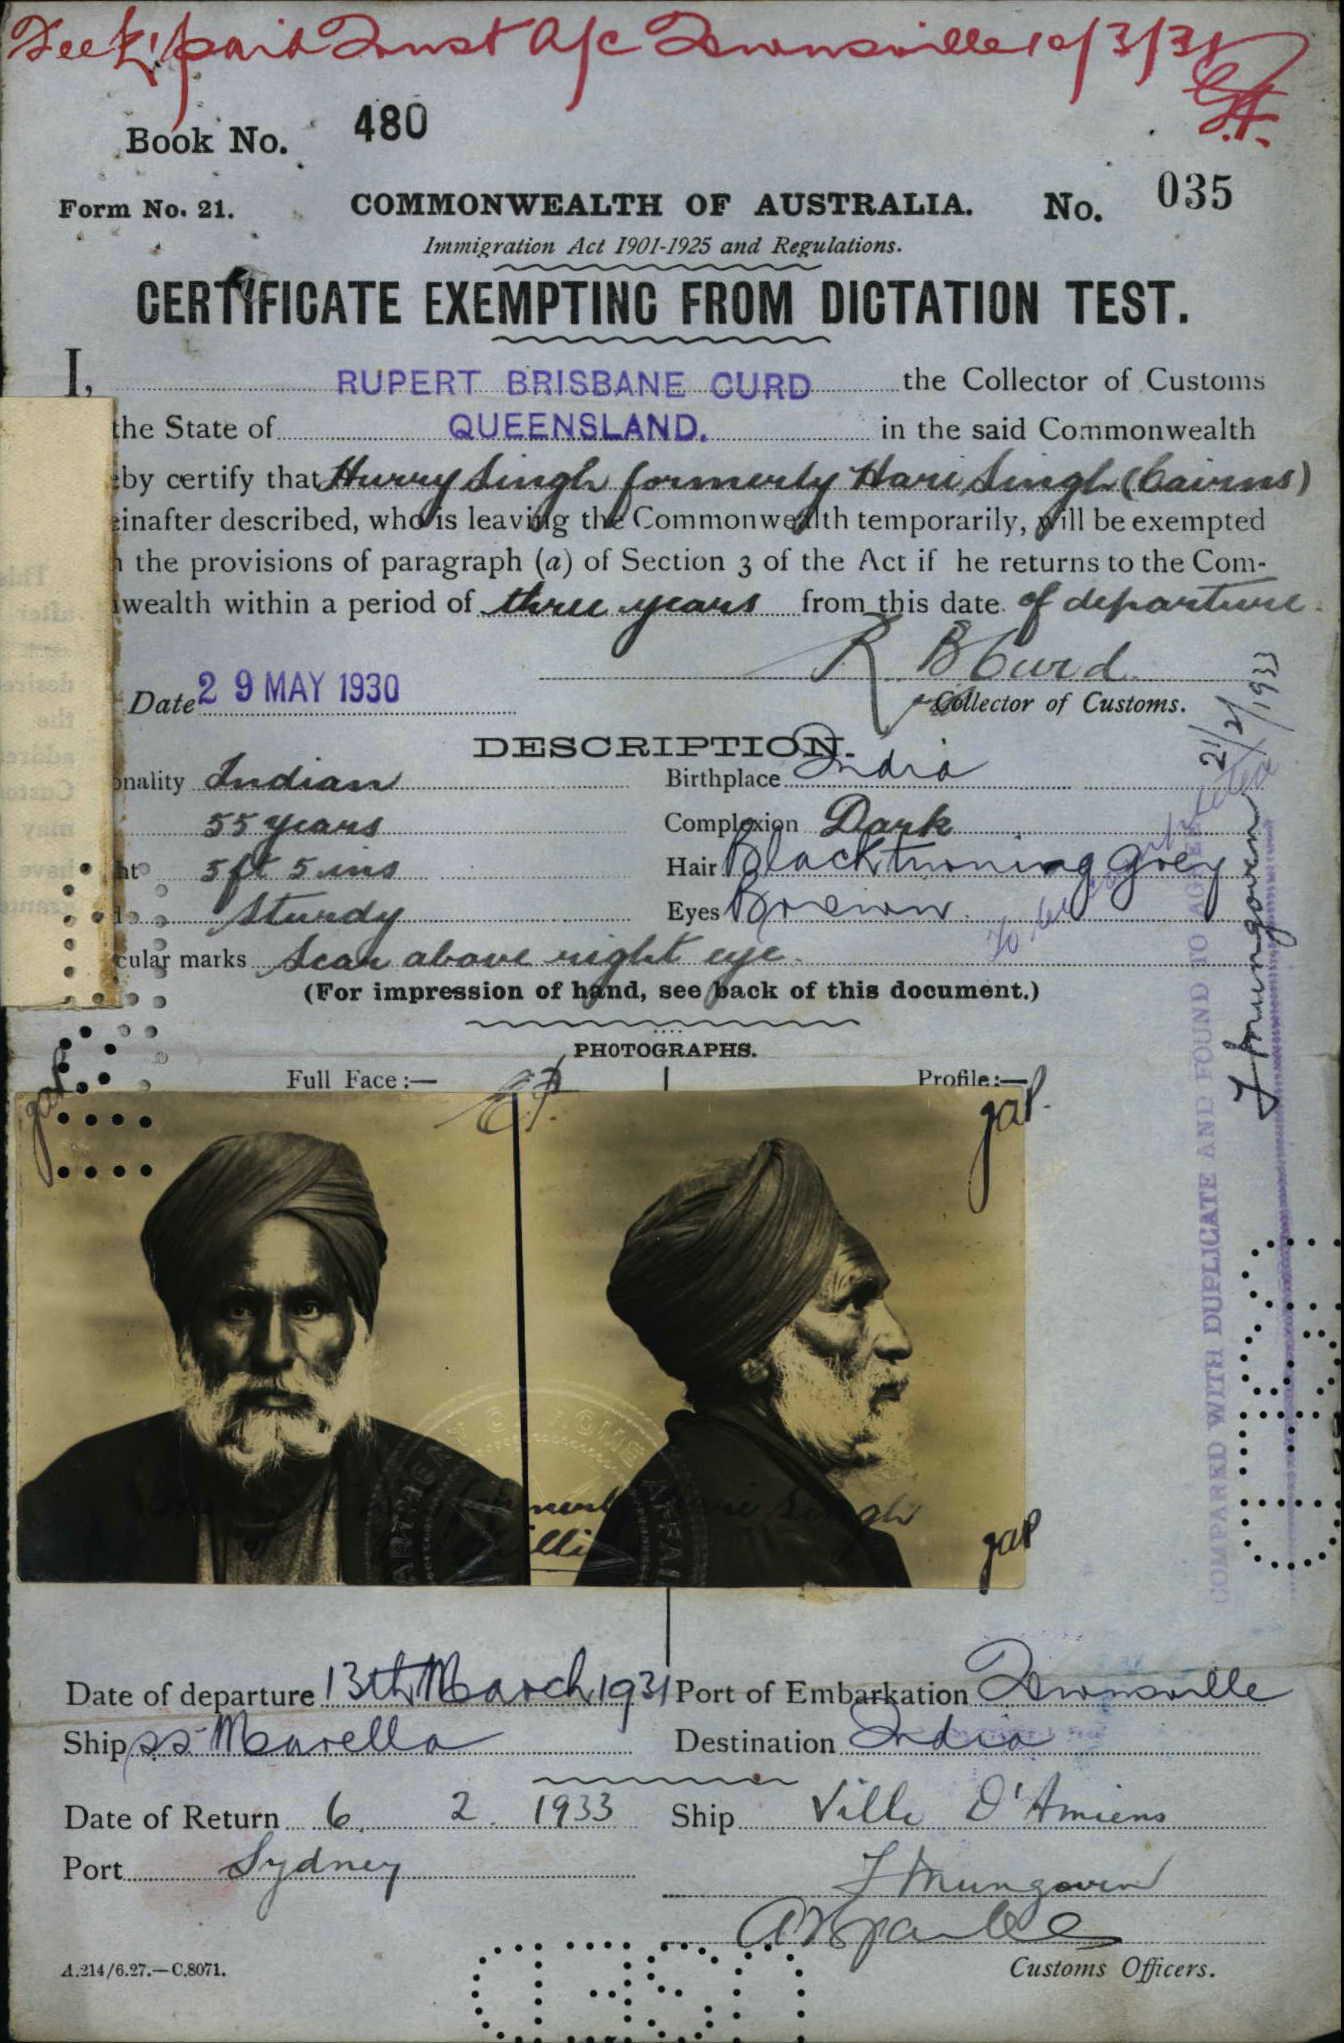 Fee £1 paid Trust A/c Townsville 10/3/31
Book No. 480
Form No. 21. COMMONWEALTH OF AUSTRALIA. No. 035
Immigration Act 1901-1925 and Regulations.
CERTIFICATE EXEMPTING FROM DICTATION TEST.
I, RUPERT BRISBANE CURD the Collector of Customs
the State of QUEENSLAND. in the said Commonwealth
by certify that Hurry Singh formerly Hari Singh (Cairns)
einafter described, who is leaving the Commonwealth temporarily, will be exempted
the provisions of paragraph (a) of Section 3 of the Act if he returns to the Com-
wealth within a period of three years from this date of departure.
R B Curd
Date 29 MAY 1930 Collector of Customs.
DESCRIPTION.
onality Indian Birthplace India
55 years Complexion Dark
ht 5 ft 5 ins Hair Black turning grey
Sturdy Eyes Brown.
cular marks Scar above right eye.
(For impression of hand, see back of this document.)
PHOTOGRAPHS.
Full Face:— Profile:—
gap
gap
gap
COMPARED WITH DUPLICATE AND FOUND TO AGREE
J Mungoven 21/2/1933
Singh
Date of departure 13th March 1931 Port of Embarkation Townsville
Ship ss Marella Destination India
Date of Return 6. 2. 1933 Ship Ville D'Amiens
Port Sydney
J Mungoven
Customs Officers.
A.214/6.27.—C.8071.